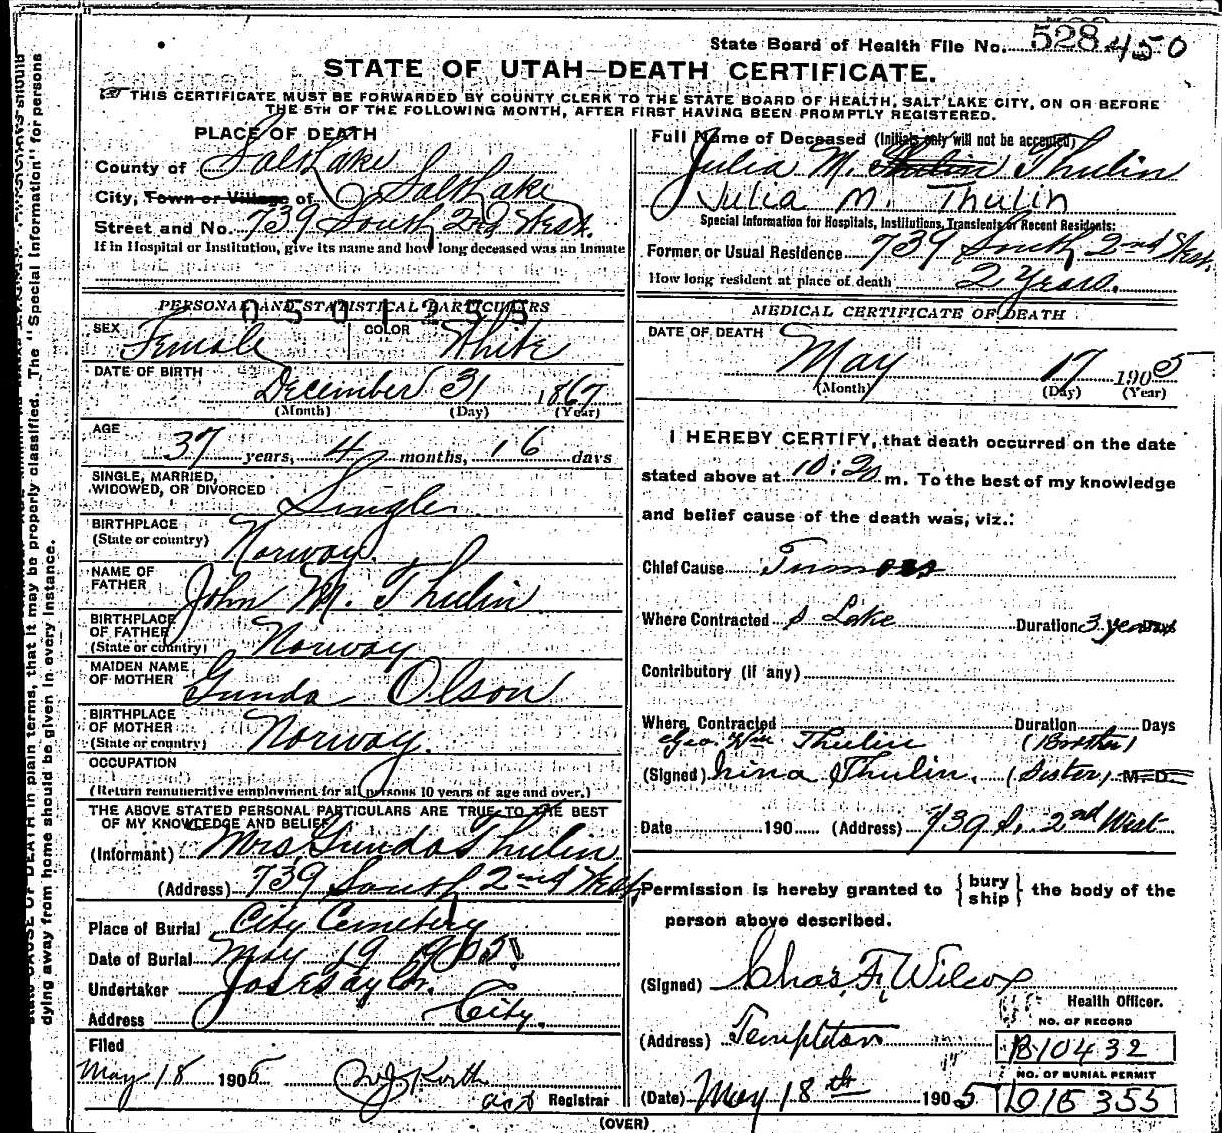 State Board of Health File No. 528 450
STATE OF UTAH—DEATH CERTIFICATE.
THIS CERTIFICATE MUST BE FORWARDED BY COUNTY CLERK TO THE STATE BOARD OF HEALTH, SALT LAKE CITY, ON OR BEFORE
THE 5TH OF THE FOLLOWING MONTH, AFTER FIRST HAVING BEEN PROMPTLY REGISTERED.
PLACE OF DEATH
County of Salt Lake
City, Town or Village of Salt Lake
Street and No. 739 South 2nd West.
If in Hospital or Institution, give its name and how long deceased was an Inmate
PERSONAL AND STATISTICAL PARTICULARS
0501255
SEX Female COLOR White
DATE OF BIRTH December 31 1867
(Month) (Day) (Year)
AGE
37 years, 4 months, 16 days
SINGLE, MARRIED,
WIDOWED, OR DIVORCED Single
BIRTHPLACE
(State or country) Norway.
NAME OF
FATHER John M. Thulin
BIRTHPLACE
OF FATHER
(State or country) Norway
MAIDEN NAME
OF MOTHER Gunda Olson
BIRTHPLACE
OF MOTHER
(State or country) Norway.
OCCUPATION
(Return remunerative employment for all persons 10 years of age and over.)
THE ABOVE STATED PERSONAL PARTICULARS ARE TRUE TO THE BEST
OF MY KNOWLEDGE AND BELIEF
(Informant) Mrs Gunda Thulin
(Address) 739 South 2nd West,
Place of Burial City Cemetery
Date of Burial May 19 1905
Undertaker Jos E Taylor.
Address City.
Filed
May 18 1905
asst Registrar
Full Name of Deceased (Initials only will not be accepted)
Julia M. Thulin Thulin
Julia M. Thulin
Special Information for Hospitals, Institutions, Transients or Recent Residents:
Former or Usual Residence 739 South 2nd West,
How long resident at place of death 2 Years.
MEDICAL CERTIFICATE OF DEATH
DATE OF DEATH
May 17 1905
(Month) (Day) (Year)
I HEREBY CERTIFY, that death occurred on the date
stated above at 10:20 m. To the best of my knowledge
and belief cause of the death was, viz.:
Chief Cause Tumors
Where Contracted S Lake Duration 3 years
Contributory (if any)
Where Contracted Duration Days
Geo. Wm Thulin (Brother)
(Signed) Thulin. (Sister) M. D.
Date 190 (Address) 739 S. 2nd West
Permission is hereby granted to { bury ship } the body of the
person above described.
(Signed) Chas. F. Wilcox
Health Officer.
(Address) Templeton
NO. OF RECORD
B10432
NO. OF BURIAL PERMIT
(Date) May 18th 1905 D15355
(OVER)
CAUSE OF DEATH in plain terms, that it may be properly classified. The "Special Information" for persons
dying away from home should be given in every instance.